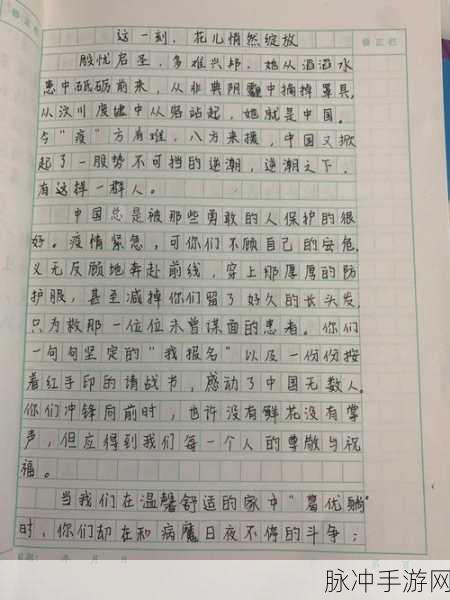 这一刻，花儿悄然绽放
修正栏
殷忧启圣，多难兴邦，她从滔滔水
患中砥砺前来，从非典阴霾中摘掉罩具，
从汶川废墟中从容站起，她就是中国。
今"疫"方有难，八方来援，中国又掀
起了一股势不可挡的逆潮，逆潮之下，
有这样一群人。
中国总是被那些勇敢的人保护的很
好。疫情紧急，可你们不顾自己的安危，
义无反顾地奔赴前线，穿上那厚厚的防
护服，甚至减掉你们留了好久的长头发，
只为救那一位位未曾谋面的患者。你们
一句句坚定的"我报名"以及一份份按
着红手印的请战节，感动了中国无数人。
你们冲锋向前时，也许没有鲜花没有掌
声，但应得到我们每一个人的尊敬与祝
福。
当我们在温馨舒适的家中"葛优躺"
时，你们却在和病魔日夜不停的斗争；
脉冲手游网